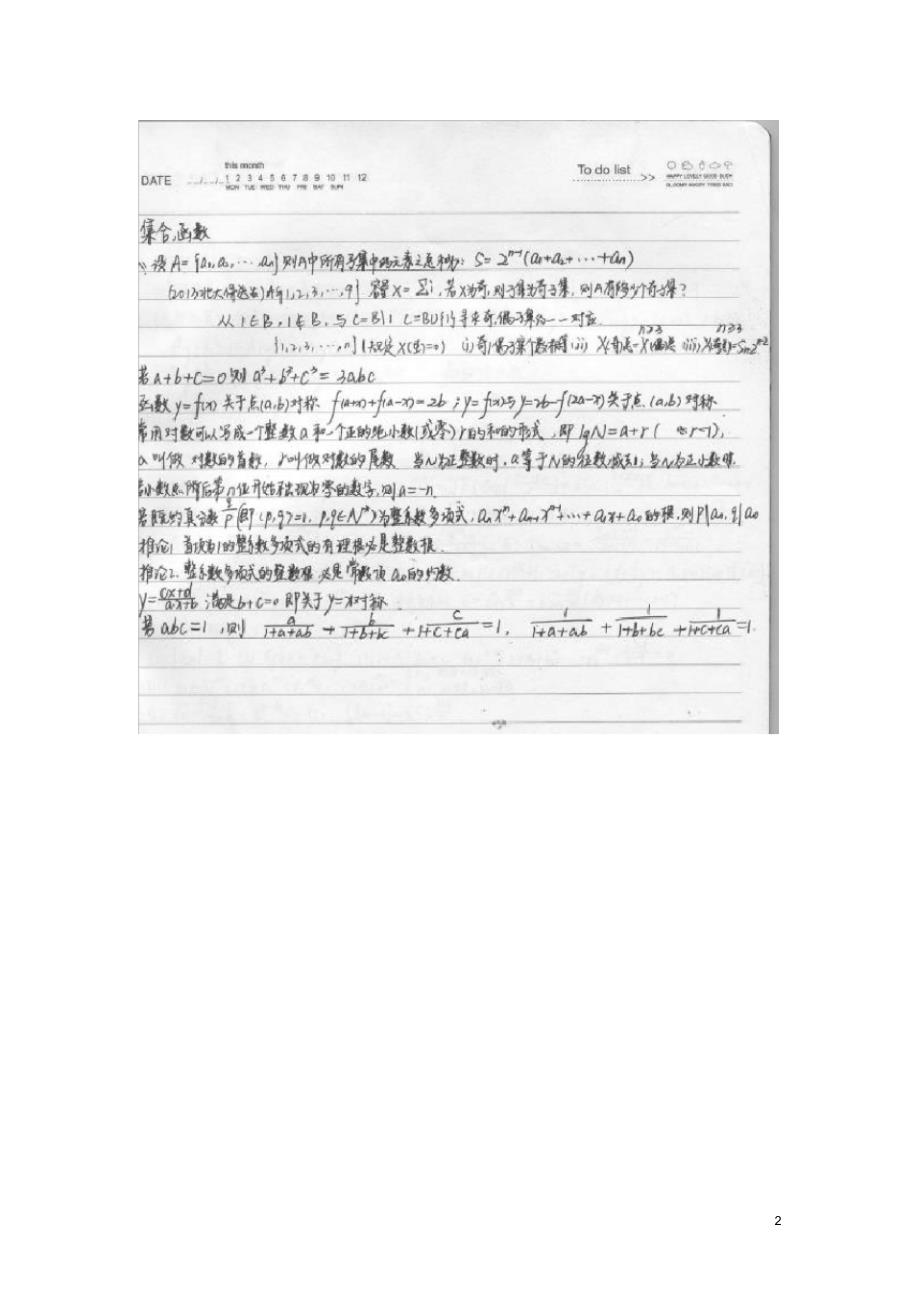 this month
DATE __/__/__ 1 2 3 4 5 6 7 8 9 10 11 12
MON TUE WED THU FRI SAT SUN
To do list >>
HAPPY LOVELY GOOD
GLOOMY ANGRY TIRED SAD
集合,函数
设A={a₁,a₂,…aₙ}则A中所有子集中的元素之总和为: S=2ⁿ⁻¹(a₁+a₂+…+aₙ)
(2013北大保送生)A={1,2,3,…,9} 容量X=Σi,若X为奇,则子集为奇子集,则A有多少个奇子集?
从1∈B,1∉B,与C=B\1 C=B∪{1}寻求奇,偶子集的一一对应.
{1,2,3,…,n}(规定X(∅)=0) (i)奇/偶子集个数相等(ii) n≥3 (iii) n≥3
若a+b+c=0则a³+b³+c³=3abc
函数y=f(x)关于点(a,b)对称 f(a+x)+f(a-x)=2b;y=f(x)与y=2b-f(2a-x)关于点(a,b)对称
常用对数可以写成一个整数a和一个正的纯小数(或零)r的和的形式,即lgN=a+r(0≤r<1),
a叫做对数的首数,r叫做对数的尾数 当N为正整数时,a等于N的位数减去1;当N为正小数时
若小数点所后第n位开始出现非零的数字,则a=-n.
若既约真分数q/p(即(p,q)=1,p,q∈N*)为整系数多项式,aₙxⁿ+aₙ₋₁xⁿ⁻¹+…+a₁x+a₀的根,则p|aₙ,q|a₀
推论1 首项为1的整系数多项式的有理根必是整数根.
推论2.整系数多项式的整数根必是常数项a₀的约数.
y=(cx+d)/(ax+b) 满足b+c=0即关于y=x对称
若abc=1,则 a/(1+a+ab) + b/(1+b+bc) + c/(1+c+ca)=1, 1/(1+a+ab) + 1/(1+b+bc) + 1/(1+c+ca)=1.
2